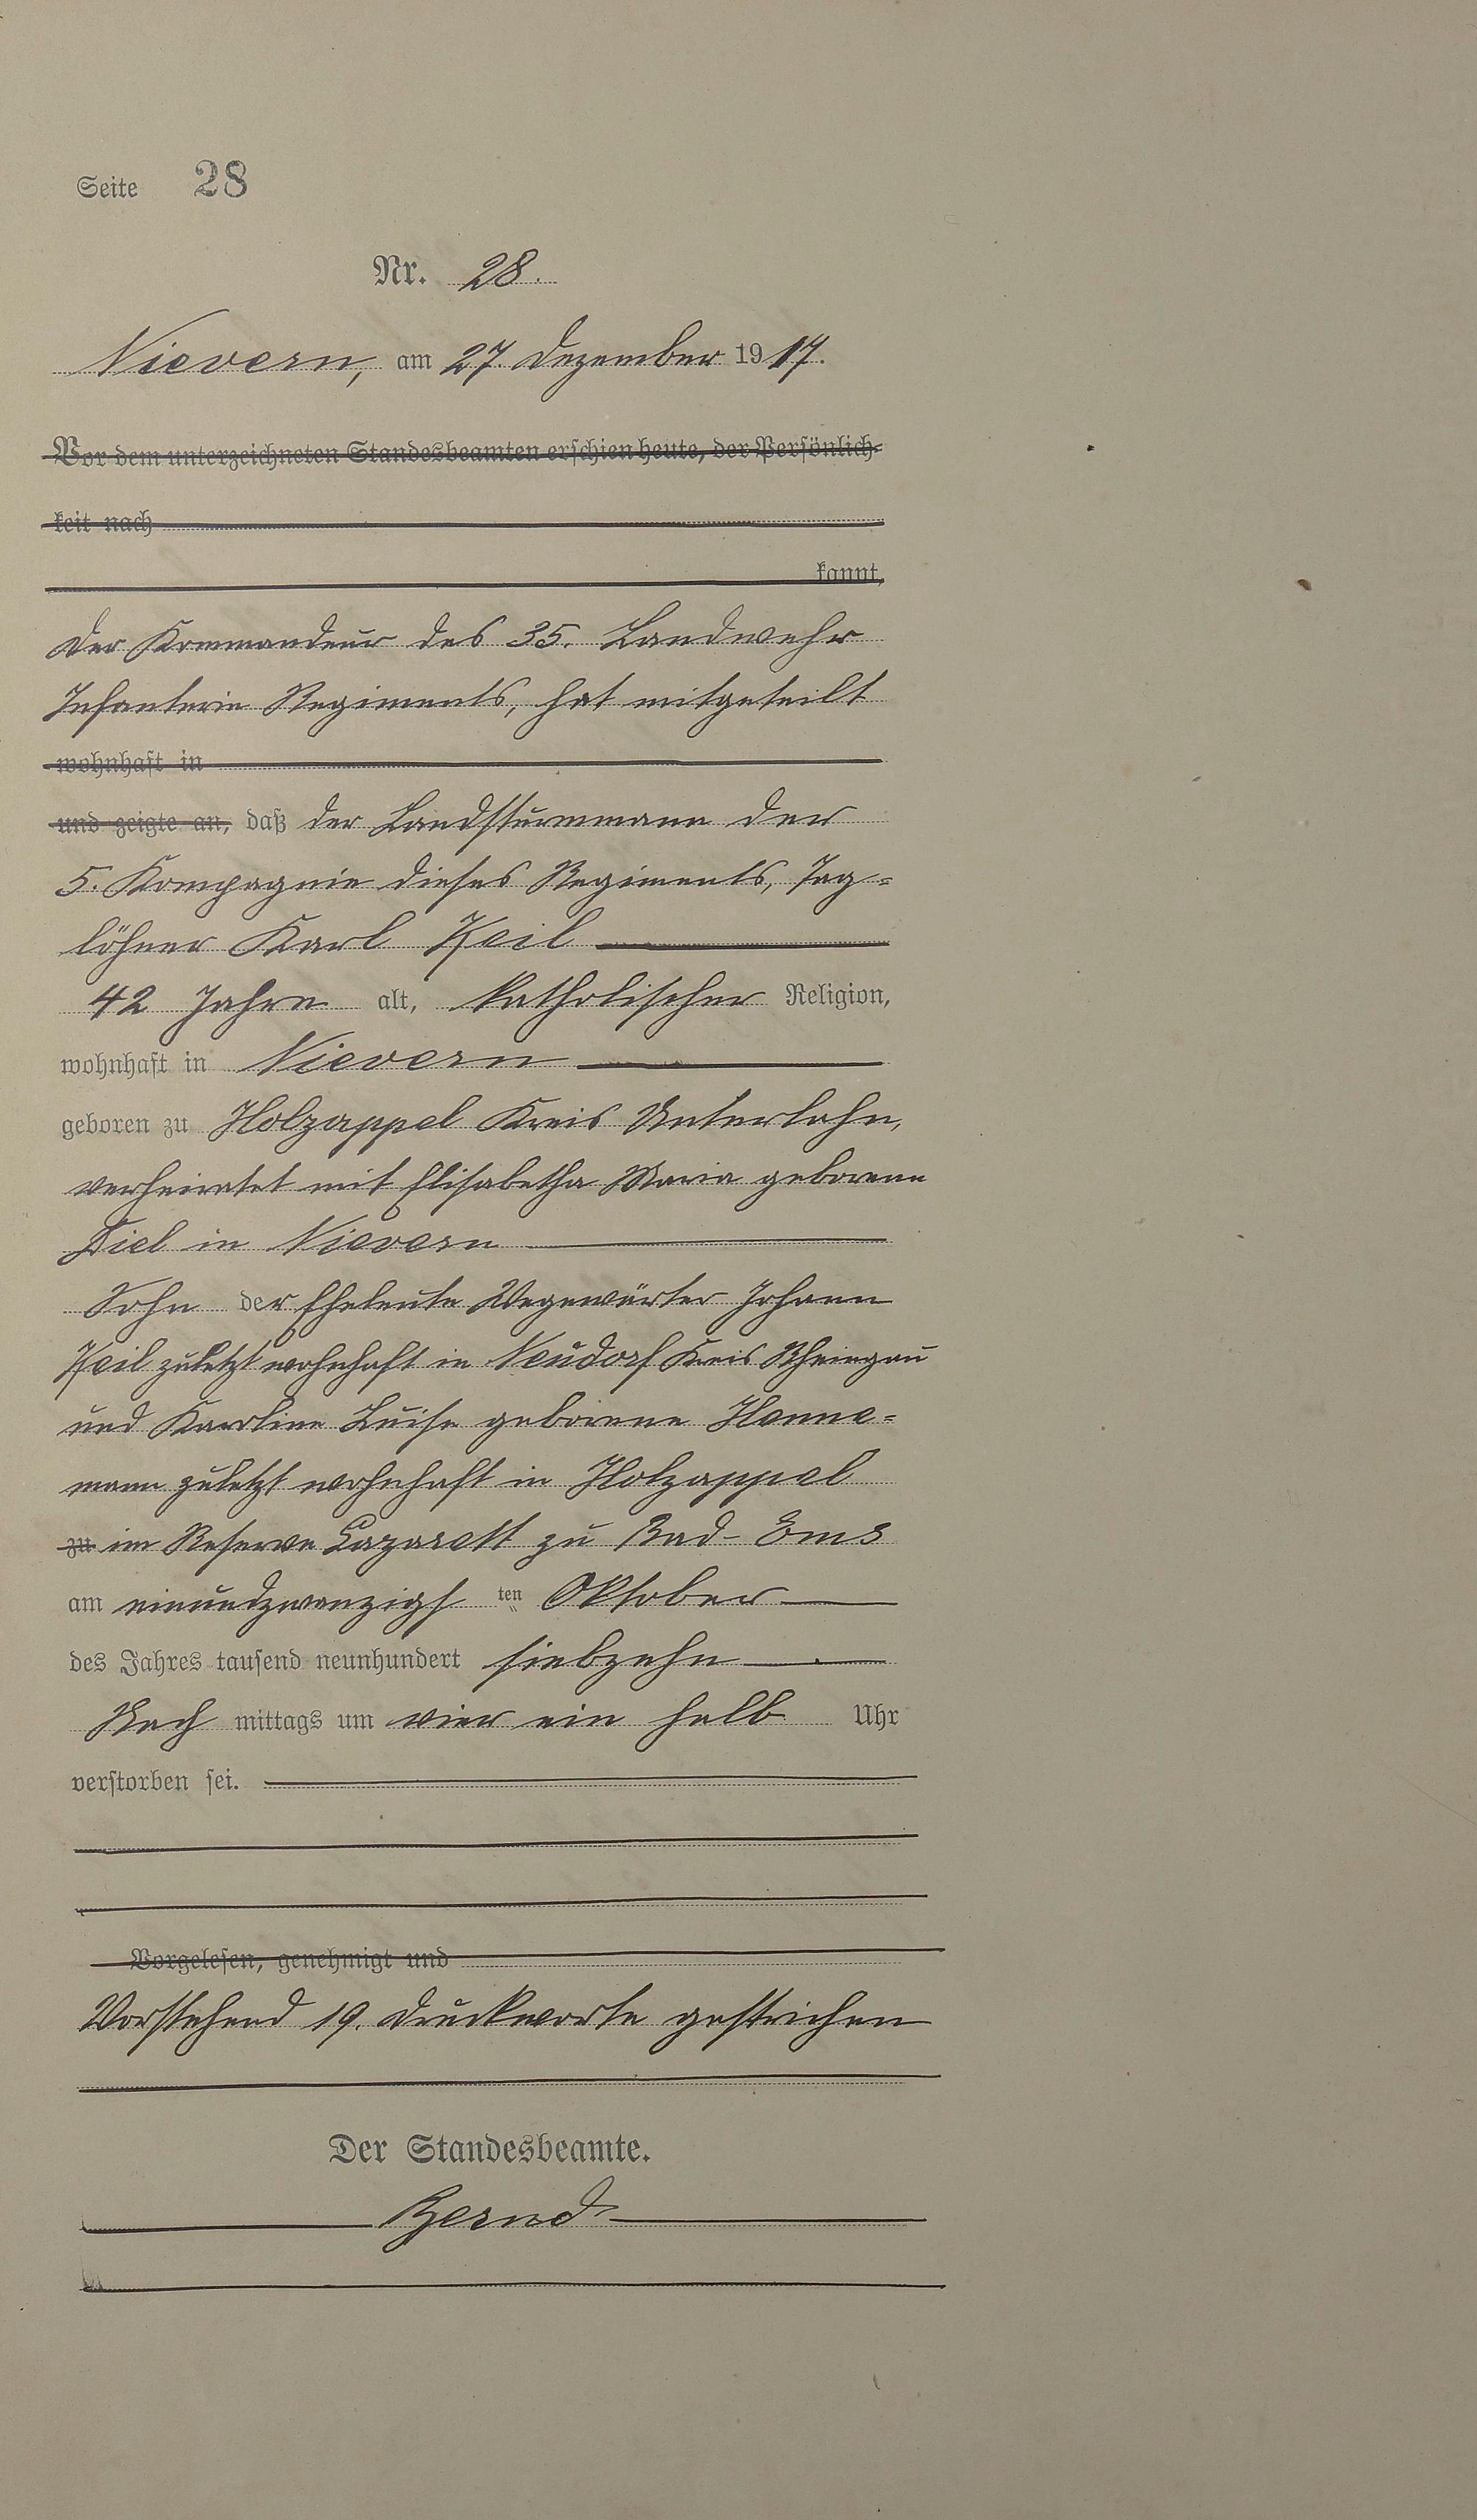 Seite 28
Nr. 28.
Nievern, am 27. Dezember 1917.
Vor dem unterzeichneten Standesbeamten erschien heute, der Persönlich-
keit nach
kannt,
Der Kommandeur des 35. Landwehr
Infanterie Regiments, hat mitgeteilt
wohnhaft in
und zeigte an, daß der Landsturmmann der
5. Kompagnie dieses Regiments, Tag-
löhner Karl Keil
42 Jahre alt, katholischer Religion,
wohnhaft in Nievern
geboren zu Holzappel Kreis Unterlahn,
verheiratet mit Elisabetha Maria geborene
Diel in Nievern
Sohn der Eheleute Wegewärter Johann
Keil zuletzt wohnhaft in Neudorf Kreis Rheingau
und Karoline Luise geborene Hanne-
mann zuletzt wohnhaft in Holzappel
zu im Reserve Lazarett zu Bad-Ems
am einundzwanzigsten Oktober
des Jahres tausend neunhundert siebzehn
Nachmittags um vier ein halb Uhr
verstorben sei.
Vorgelesen, genehmigt und
Vorstehend 19. Druckworte gestrichen
Der Standesbeamte.
Bernd